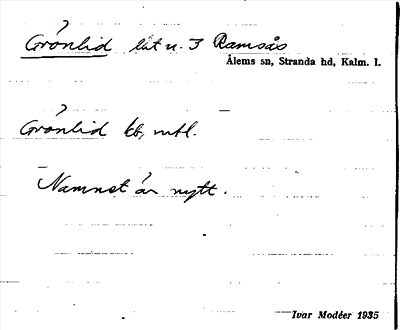 Grönlid lät u. 3 Ramsås
Ålems sn, Stranda hd, Kalm. l.
Grönlid kb, mtl.
Namnet är nytt.
Ivar Modéer 1935